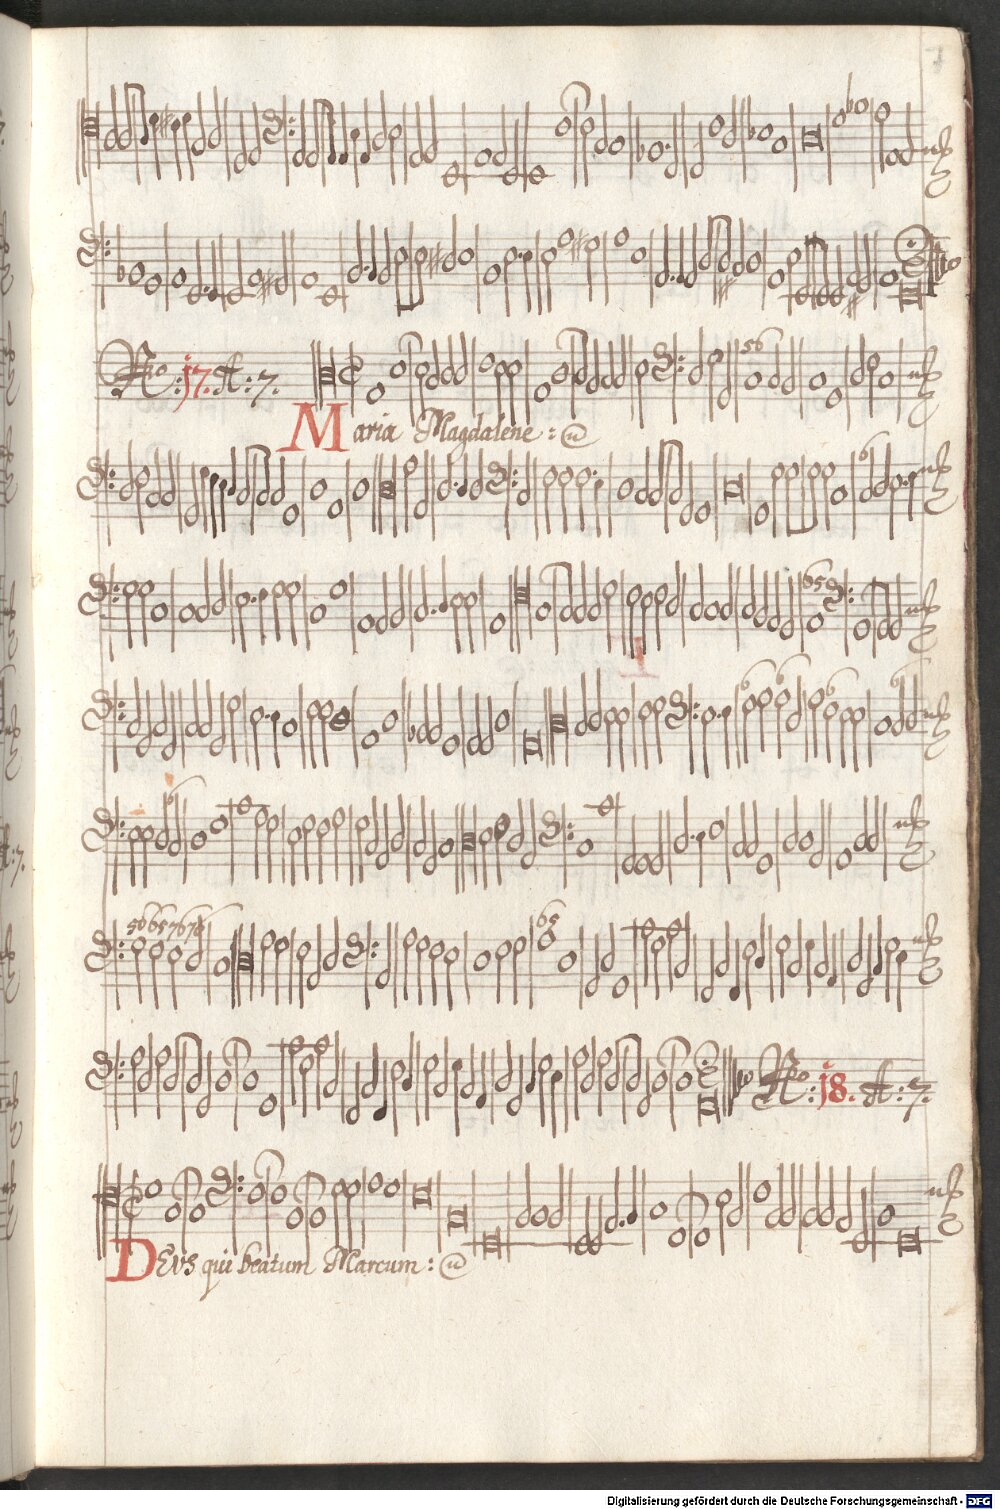 7
No: 17. A: 7.
56
Maria Magdalene :
6
65
6 6 6 6
6
56657676
65
No: 18. A: 7.
DEVS qui beatum Marcum :
Digitalisierung gefördert durch die Deutsche Forschungsgemeinschaft - DFG